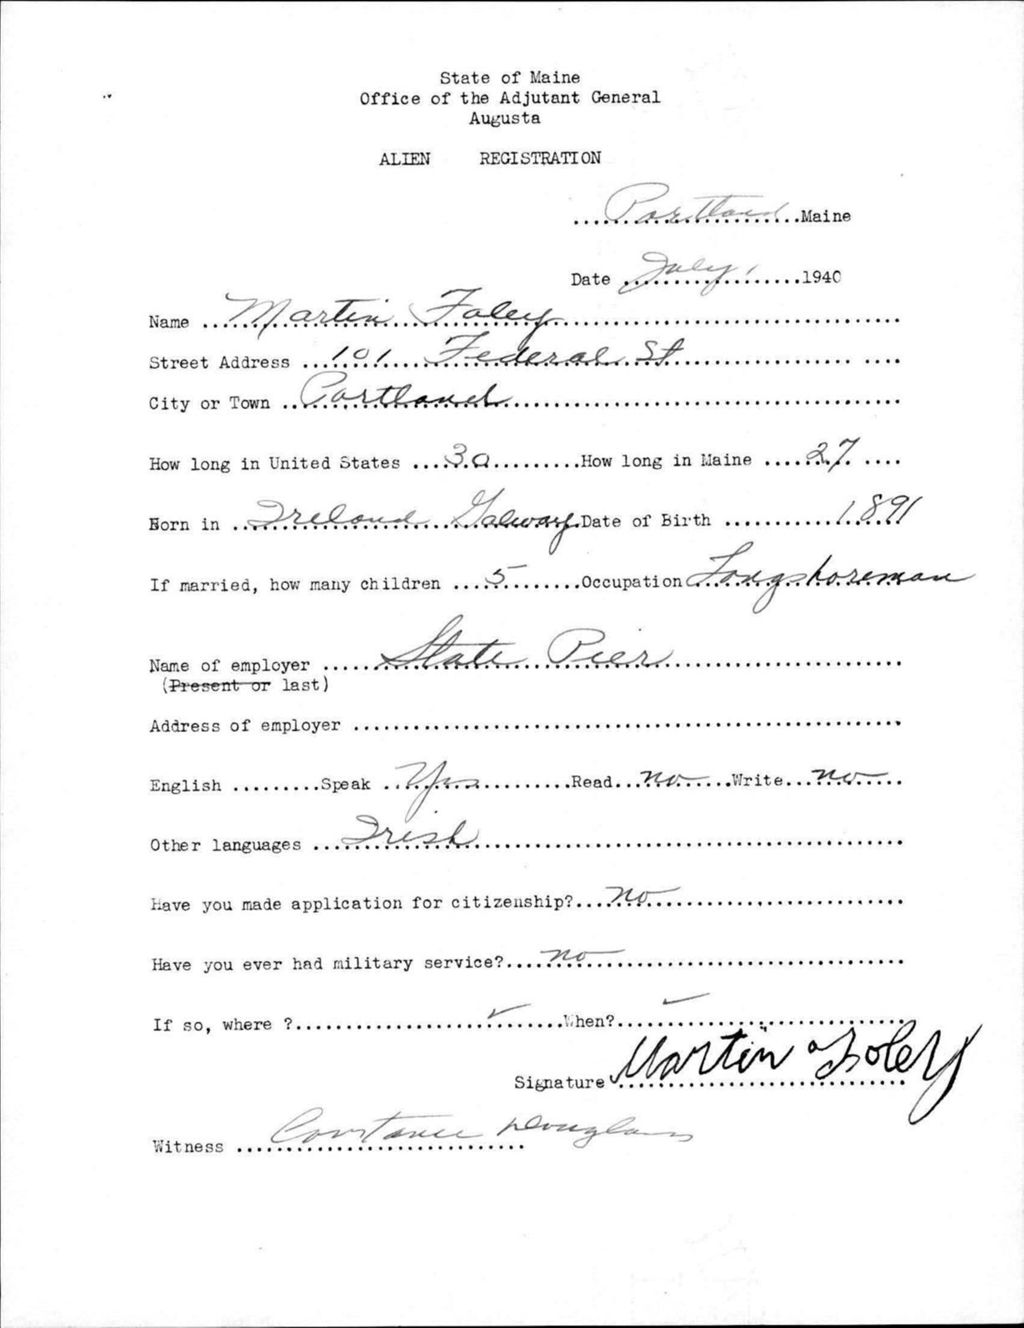 State of Maine
Office of the Adjutant General
Augusta
ALIEN REGISTRATION
....Portland....Maine
Date ....July 1....1940
Name ....Martin Foley....
Street Address ....101 Federal St....
City or Town ....Portland....
How long in United States ....30....How long in Maine ....27....
Born in ....Ireland Galway....Date of Birth ....1891
If married, how many children ....5....Occupation Longshoreman
Name of employer ....State Pier....
(Present or last)
Address of employer ....
English ....Speak ....Yes....Read...no....Write...no....
Other languages ....Irish....
Have you made application for citizenship?....no....
Have you ever had military service?....no....
If so, where ?....✓....When?....✓....
Signature Martin Foley
Witness Constance Douglass